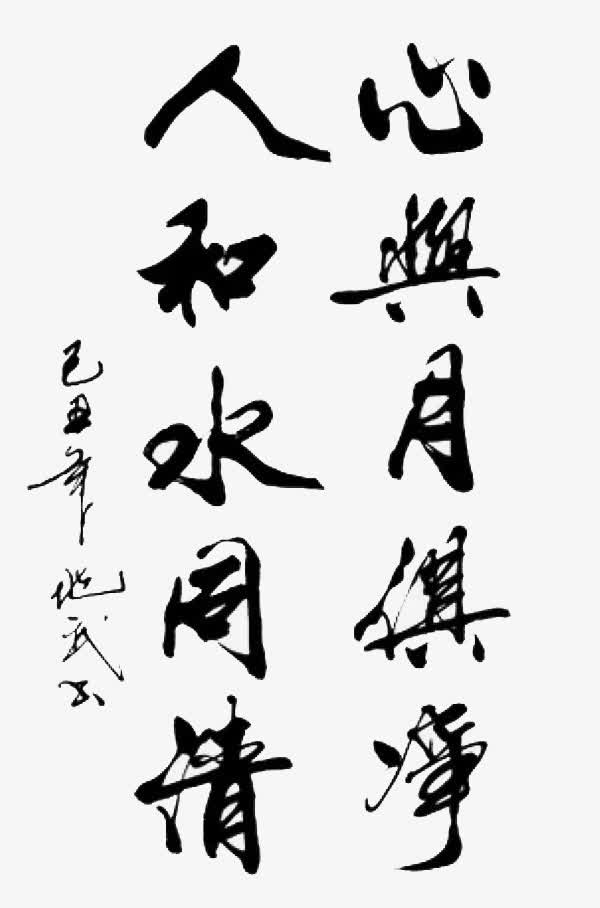 心與月俱淨
人和水同清
己丑年 地武书